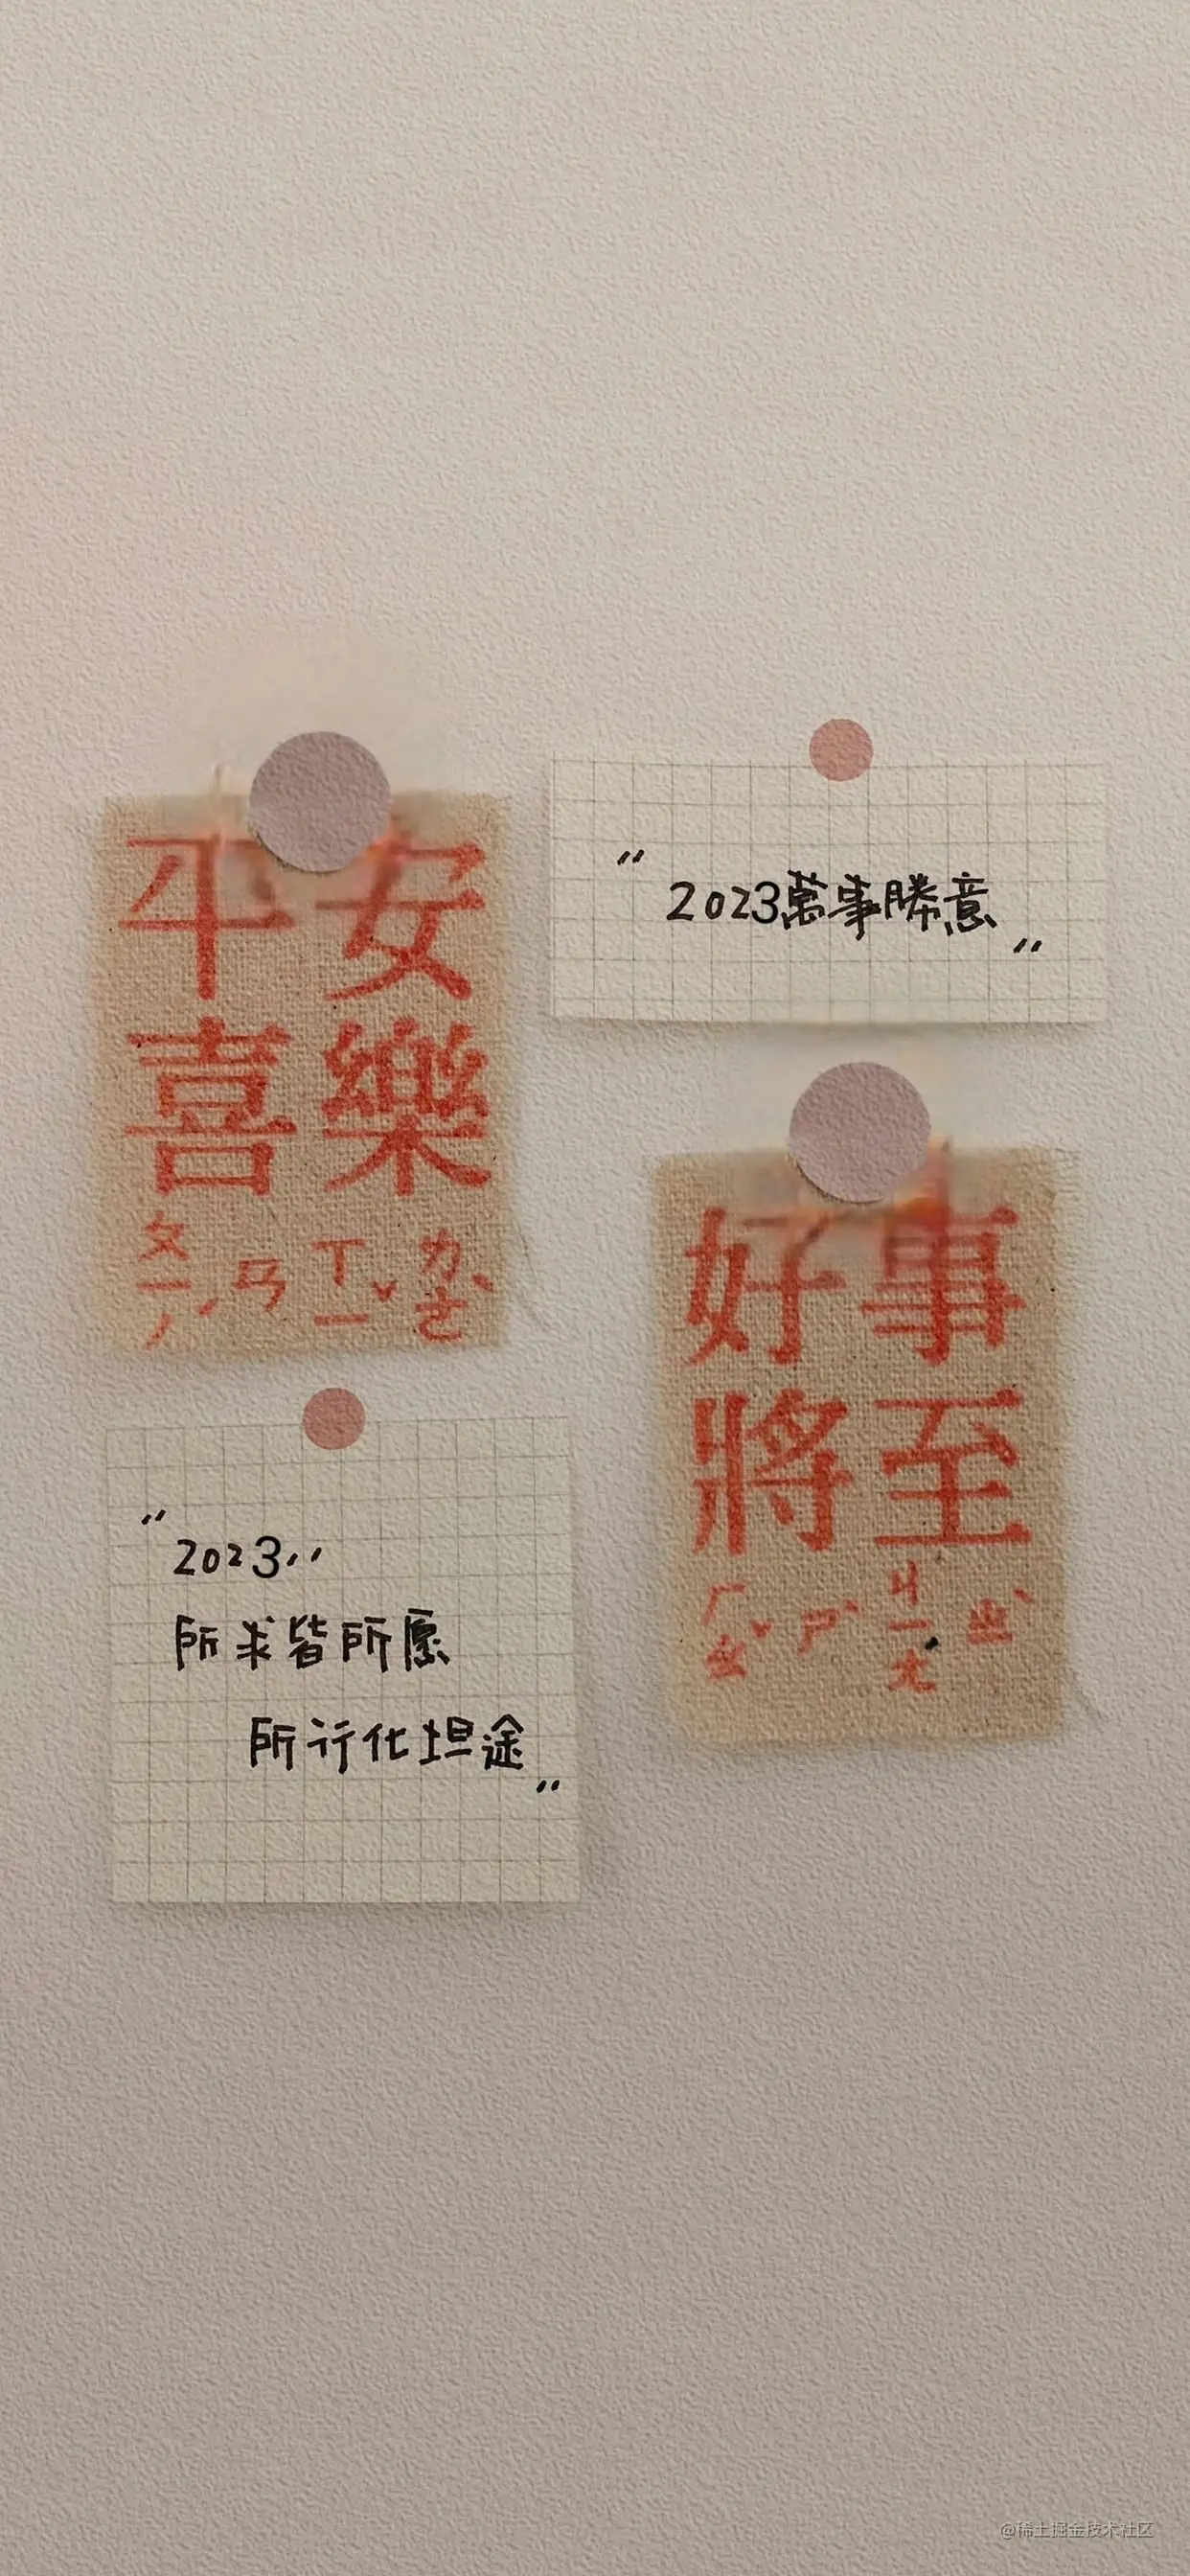 平安
喜樂
ㄆㄧㄥˊ ㄢ ㄒㄧˇ ㄌㄜˋ
"2023萬事勝意"
好事
將至
ㄏㄠˇ ㄕˋ ㄐㄧㄤ ㄓˋ
"2023..
所求皆所愿
所行化坦途"
@稀土掘金技术社区